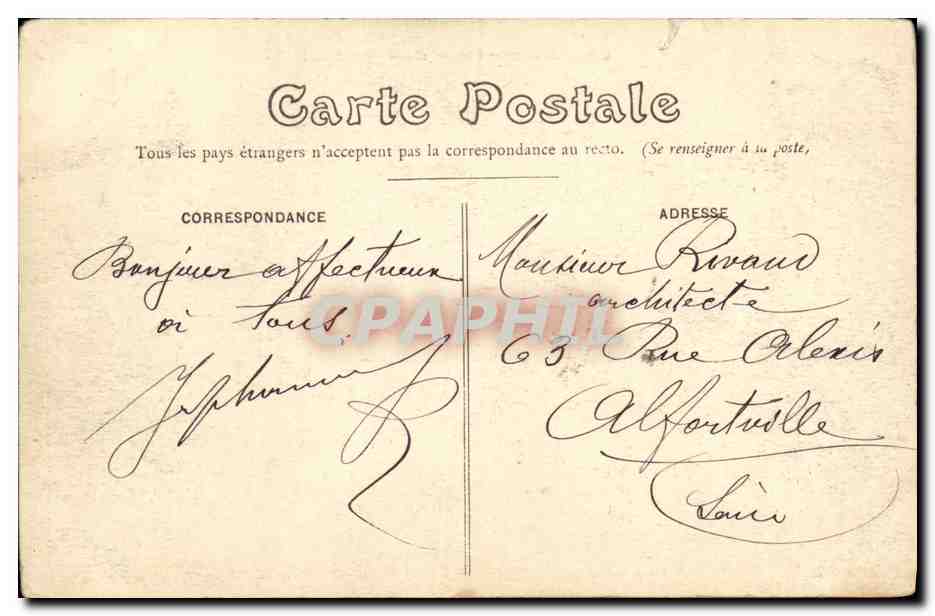 Carte Postale
Tous les pays étrangers n'acceptent pas la correspondance au recto. (Se renseigner à la poste,
CORRESPONDANCE
Bonjour affectueux
à tous.
ADRESSE
Monsieur Rivaud
architecte
63 Rue Alexis
Alfortville
Seine
CPAPHIL